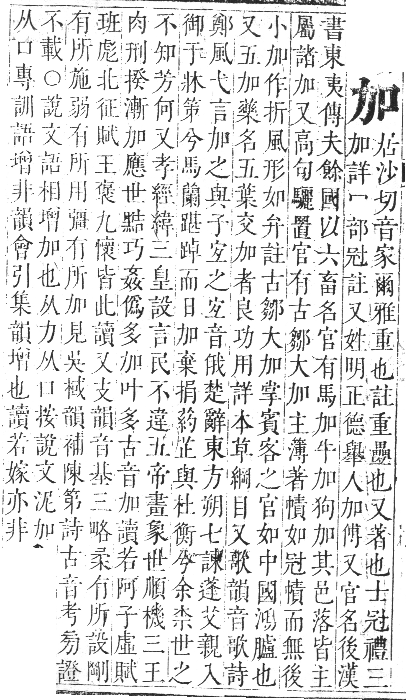 加
居沙切音家爾雅重也註重疊也又著也士冠禮三
加詳冖部冠註又姓明正德舉人加傅又官名後漢
書東夷傳夫餘國以六畜名官有馬加牛加狗加其邑落皆主
屬諸加又高句驪置官有古鄒大加主薄著幘如冠幘而無後
小加作折風形如弁註古鄒大加掌賓客之官如中國鴻臚也
又五加藥名五葉交加者良功用詳本草綱目又歌韻音歌詩
鄭風弋言加之與子宜之宜音俄楚辭東方朔七諫蓬艾親入
御于牀第兮馬蘭踸踔而日加棄捐葯芷與杜衡兮余柰世之
不知芳何又孝經緯三皇設言民不違五帝畫象世順機三王
肉刑揆漸加應世點巧姦僞多加叶多古音加讀若阿子虛賦
班彪北征賦王襃九懷皆此讀又支韻音基三略柔有所設剛
有所施弱有所用彊有所加見吳棫韻補陳第詩古音考旁證
不載○說文語相增加也从力从口按說文泥加
从口專訓語增非韻會引集韻增也讀若嫁亦非